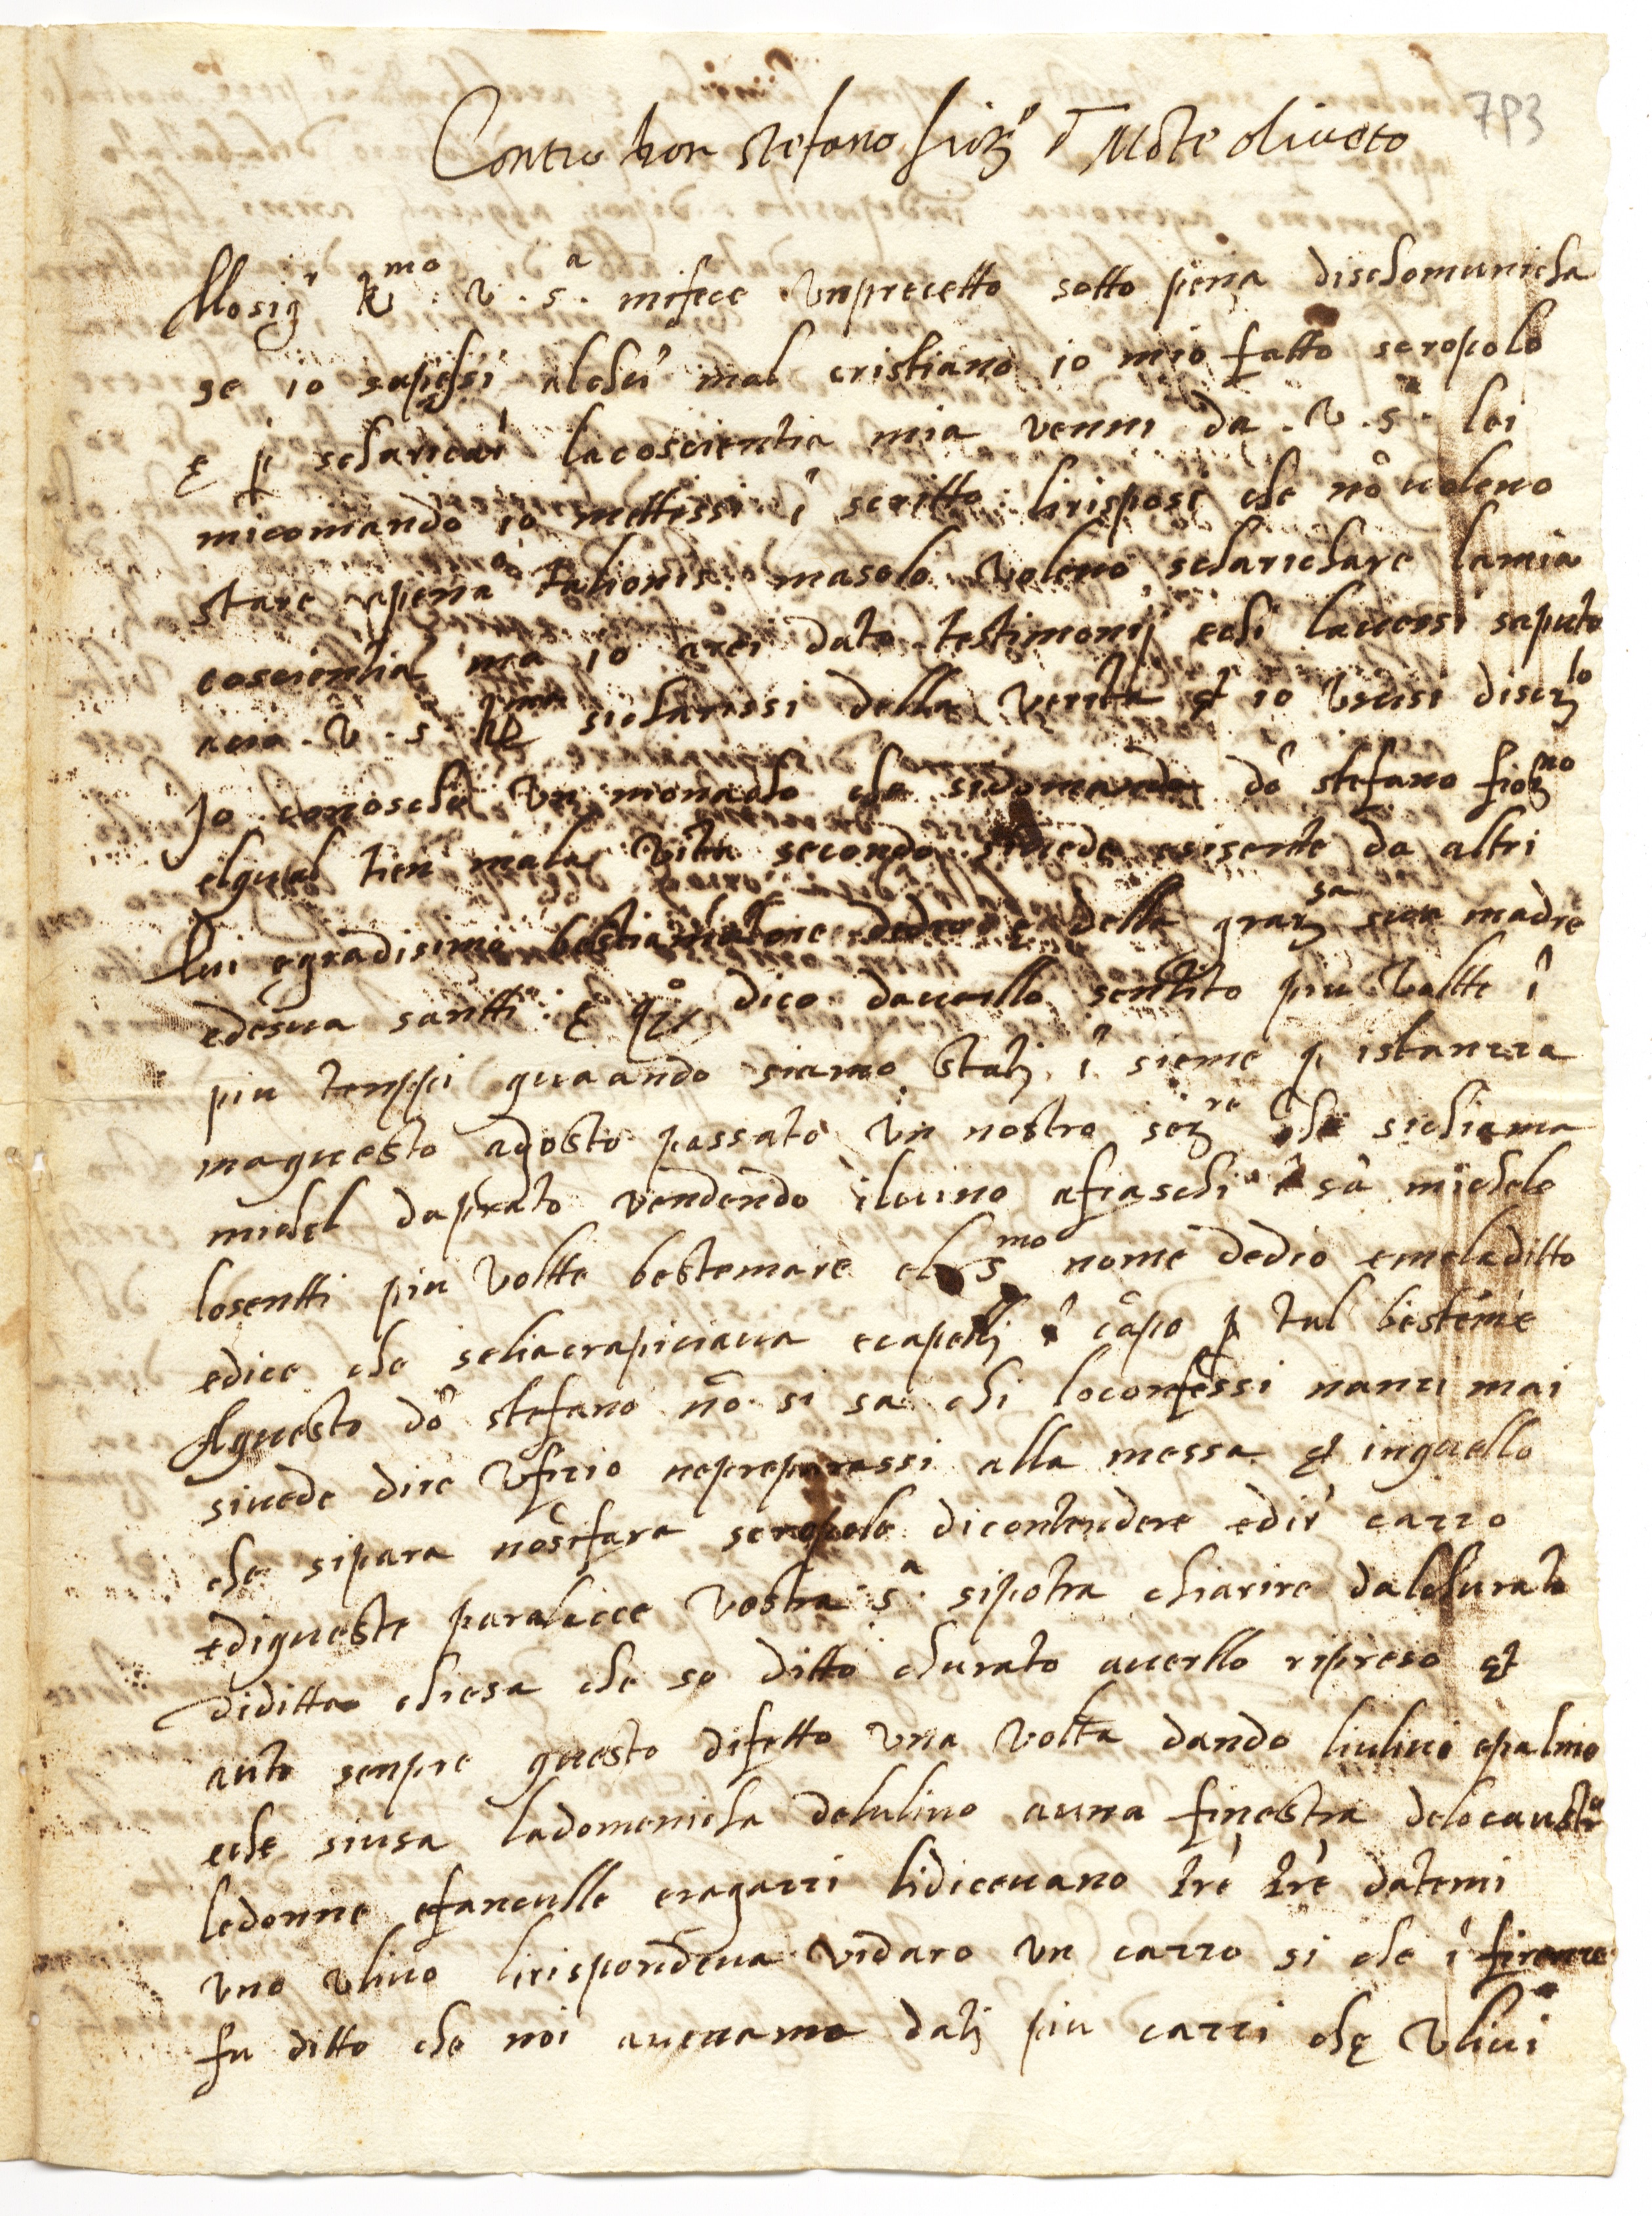 793
Contro don stefano fior° d Mõte oliveto
Mosig^r R^mo . v . s^a . mifece unprecetto sotto pena dischomunicha
se io sapessi alchũ mal cristiano io mio fatto scropolo
e p scharicar lacoscientia mia venni da . v . s^a . lei
micomando io mettessi ĩ scritto lirisposi che nõ voleuo
stare apena talionis masolo voleuo scharichare lamia
coscientia ma io arei dato testimonij echi lauerssi saputo
acio . v . s . R^ma sicharissi della verita et io uscisi discr^lo
Io conoscho un monacho che sidomanda dõ stefano fior^no
elqual tien mala vita secondo siuede esisente da altri
lui egradisimo bestiamatore dedio e della grar^sa sua madre
edesua santti . e q^o dico dauerllo sentito piu voltte ĩ
piu tenppi quaando siamo stati ĩ sieme p istanzza
maquesto agosto passato un nostro ser^re che sichiama
michel daprato vendendo iluino afiaschi ĩ sã michele
losentti piu voltte bestemare el s^mo nome dedio emeladitto
edice che seliacrapiciaua ecapelli ĩ cãpo p tal besteme
Aquesto dõ stefano nõ si sa chi loconfessi nanzi mai
siuede dire ufizio nepreparassi alla messa et inquello
che sipara nõsifara scropolo dicontendere edir cazzo
ediqueste paralacce vostra s^a . sipotra chiarire dalchurato
diditta chiesa che so ditto churato auerllo ripreso et
auto senpre questo difetto una volta dando liulivi epalme
eche siusa ladomenicha delulivo auna finestra delocaustro
ledonne efanculle eragazzi lidiceuano frẽ frẽ datemi
uno ulivo lirispondeua vidaro un cazzo si che ĩ firenze
fu ditto che noi aueuamo dati piu cazzi che ulivi